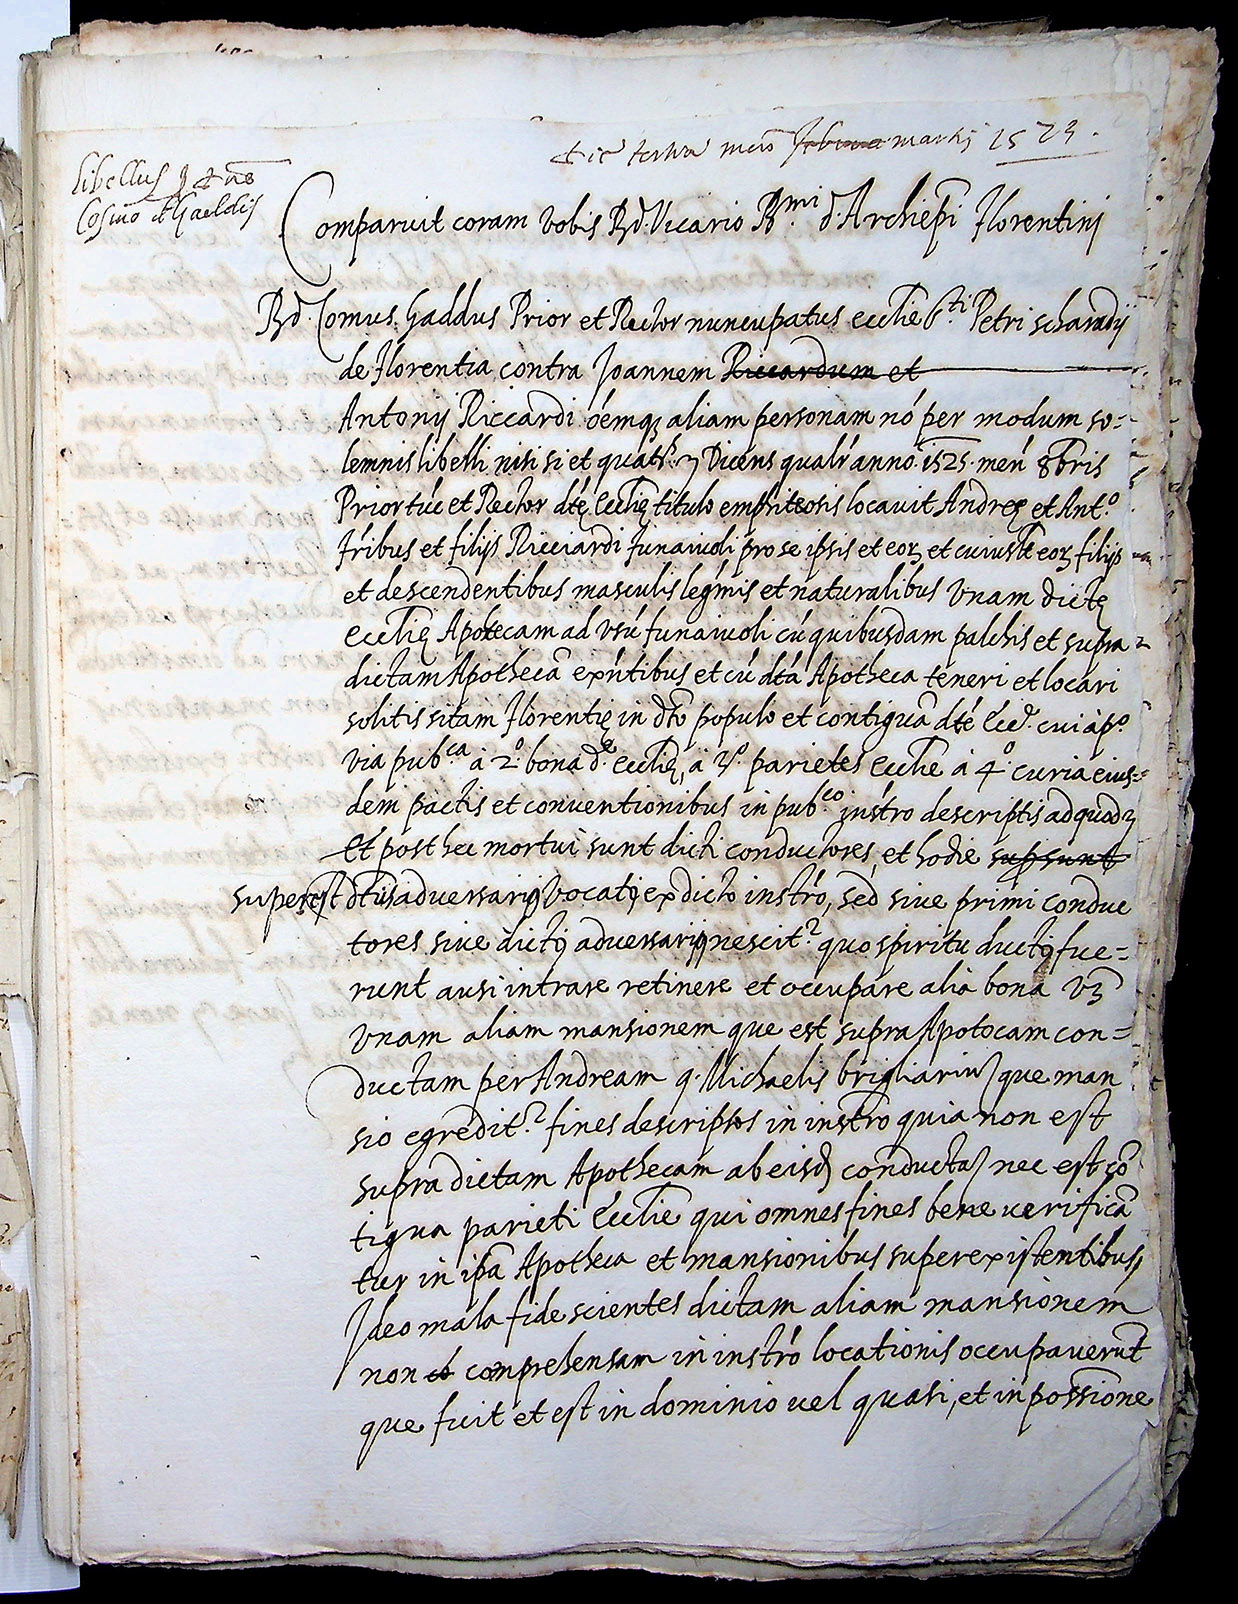 die tertia mens̄ februa martij 1573.
libellus p d no
Cosmo de Gaddis
Comparuit coram vobis Rd. Vicario R.mi d. Archiep̄i Florentinj
Rd. Comus Gaddus Prior et Rector nuncupatus eccłie S.ti Petri scharadij
de Florentia contra Joannem Riccardum et
Antonij Riccardi óemq; aliam personam nó per modum so=
lemnis libelli nisi si et quatˢ. Dicens qualr̃ anno 1525. meń 8bris
Prior túc et Rector dtę Eccłię titulo emphiteosis locavit Andreę et Ant.o
fŕibus et filijs Ricciardi funaiuoli pro se ipsis et eoꝝ et cuiusłt eoꝝ filijs
et descendentibus masculis legm̃is et naturalibus Unam dictę
eccłię Apotecam ad usú funaiuoli cú quibusdam palchis et supra
dictam Apothecã exńtibus et cú dtá Apotheca teneri et locari
solitis sitam Florentię in dto populo et contiguã dtę Eccł. cui à p.o
via pub.ca à 2.o bona d.ę eccłię, à 3.o parietes eccłie à 4.o curia eius=
dem pactis et conventionibus in pub.co instro descriptis ad quod
Et post hec mortui sunt dicti conductores, et hodie supsunt
superest dtus adversarius vocatus ex dicto instró, sed sive primi conduc
tores sive dictus adversarius nescit.r quo spiritu ductus fue=
runt ausi intrare retinere et occupare alia bona vȝ
Unam aliam mansionem que est supra Apotocam con=
ductam per Andream q. Michaelis brigliarium que man
sio egredit.r fines descriptos in instro quia non est
supra dictam Apothecam ab eisd conducta nec est cõ
tigua parieti Eccłie qui omnes fines bene verificã
tur in ip̃a Apotheca et mansionibus superexistentibus,
Ideo mala fide scientes dictam aliam mansionem
non comprehensam in instró locationis occupaverũt
que fuit et est in dominio vel quasi, et in possione